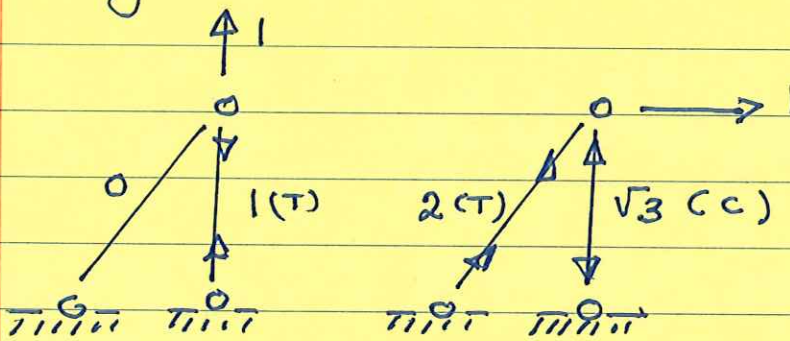 1
0
1 (T)
2 (T)
√3 (C)